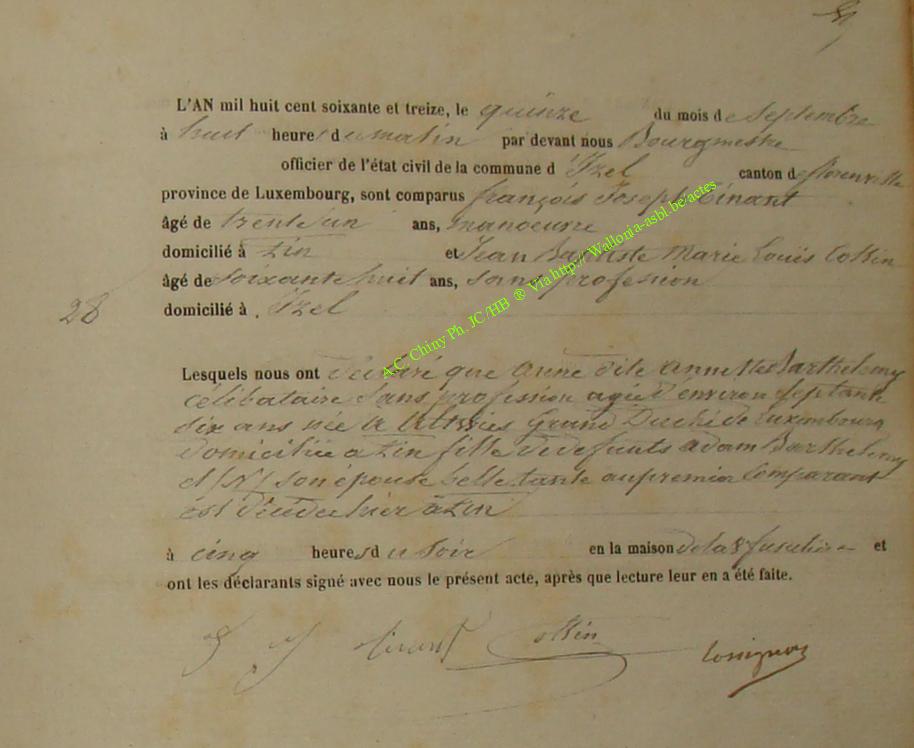 L'AN mil huit cent soixante et treize, le quinze du mois de Septembre
à huit heures du matin par devant nous Bourgmestre
officier de l'état civil de la commune d'Izel canton de florenville
province de Luxembourg, sont comparus françois Joseph Tinant
âgé de trente un ans, manoeuvre
domicilié à Pin et Jean Baptiste Marie Louis Collin
âgé de soixante huit ans, sans profession
28
domicilié à Izel
Lesquels nous ont déclaré que Anne dite Annette Barthelemy
célibataire sans profession agée d'environ septante
six ans née à Grand Duché de Luxembourg
domiciliée à Pin fille de defunts adam Barthelemy
et /N/ son épouse belle tante au premier Comparant
est décédée hier à Pin
à cinq heures du soir en la maison de la et
ont les déclarants signé avec nous le présent acte, après que lecture leur en a été faite.
F J Tinant Collin Rossignon
A.C. Chiny Ph. JC/HB ® Via http://Wallonia-asbl.be/actes